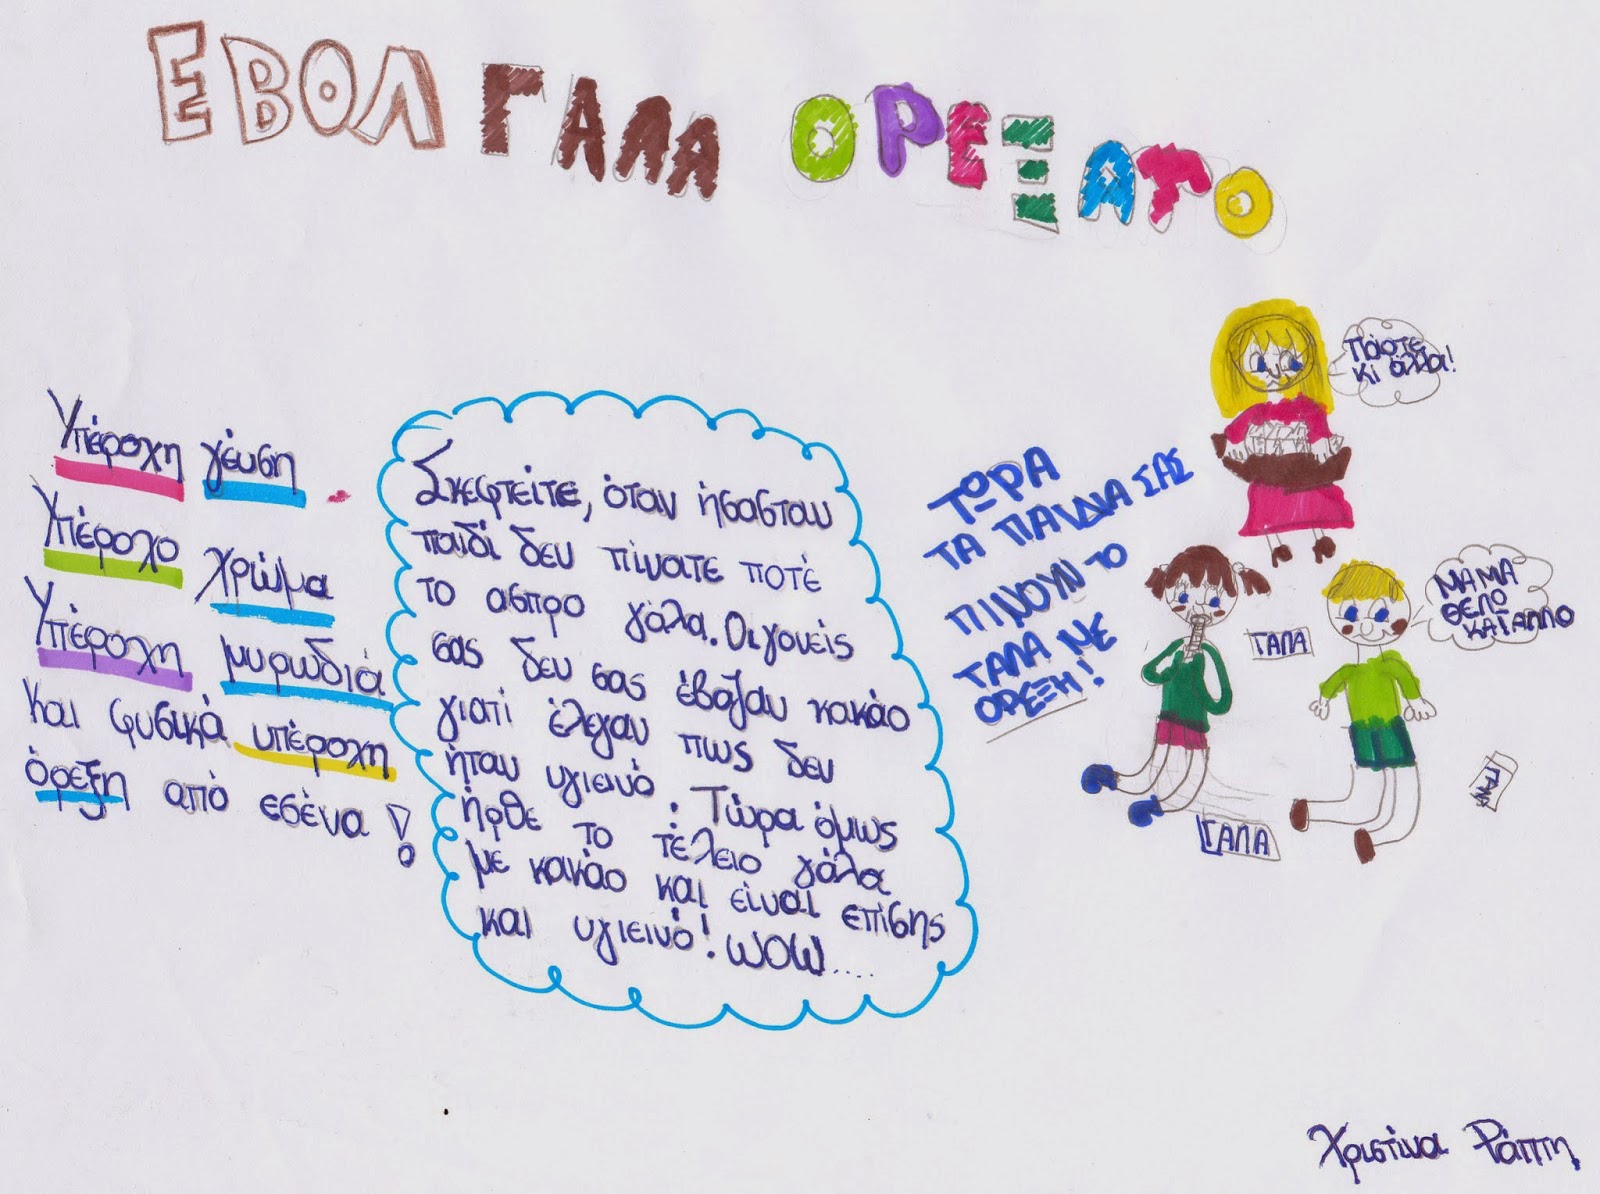 ΕΒΟΛ ΓΑΛΑ ΟΡΕΞΑΤΟ
Υπέροχη γεύση
Υπέροχο χρώμα
Υπέροχη μυρωδιά
και φυσικά υπέροχη
όρεξη από εσένα!
Σκεφτείτε, όταν ήσασταν
παιδί δεν πίνατε ποτέ
το ασπρο γάλα. Οι γονείς
σας δεν σας έβαζαν κακάο
γιατί έλεγαν πως δεν
ήταν υγιεινό. Τώρα όμως
ήρθε το τέλειο γάλα
με κακάο και είναι επίσης
και υγιεινό! WOW....
ΤΩΡΑ
ΤΑ ΠΑΙΔΙΑ ΣΑΣ
ΠΙΝΟΥΝ ΤΟ
ΓΑΛΑ ΜΕ
ΟΡΕΞΗ!
Πάρτε
κι άλλα!
ΜΑΜΑ
ΘΕΛΟ
ΚΑΙ ΑΛΛΟ
ΓΑΛΑ
ΓΑΛΑ
ΓΑΛΑ
Χριστίνα Ράπτη